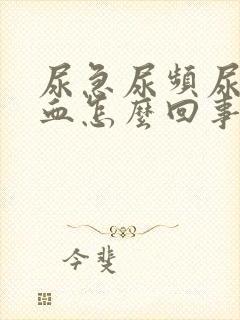 尿急尿频尿
血怎麼回事
今斐